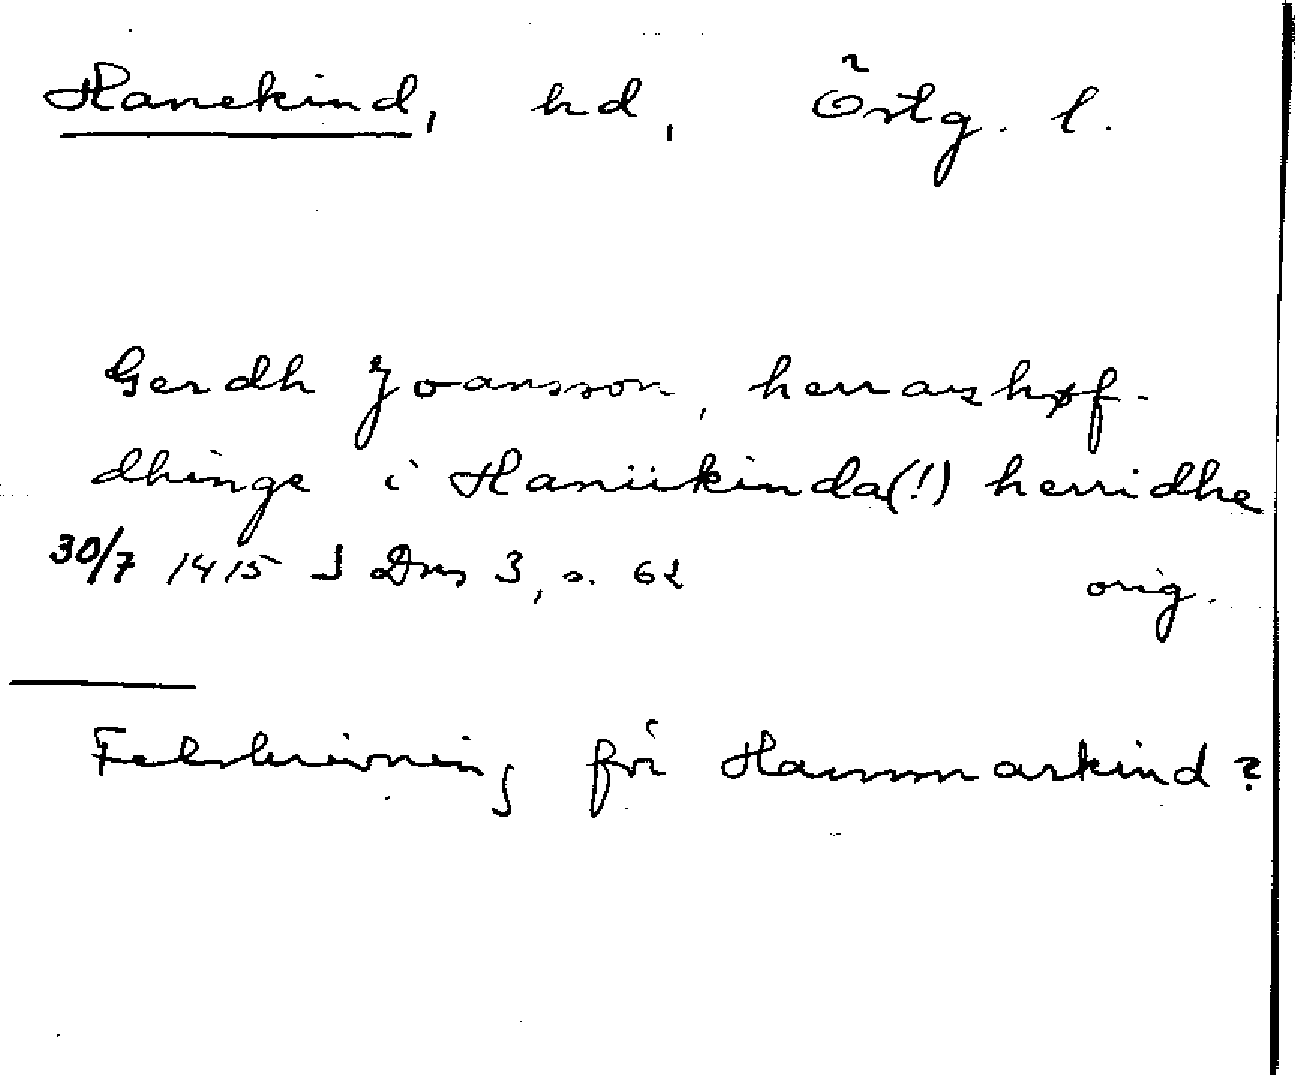 Hanekind, hd, Östg. l.
Gerdh Joansson, herrazhøf-
dhinge i Haniikinda(!) herridhe
30/7 1415 J Dns 3, s. 62 orig.
Felskrivning för Hammarkind?